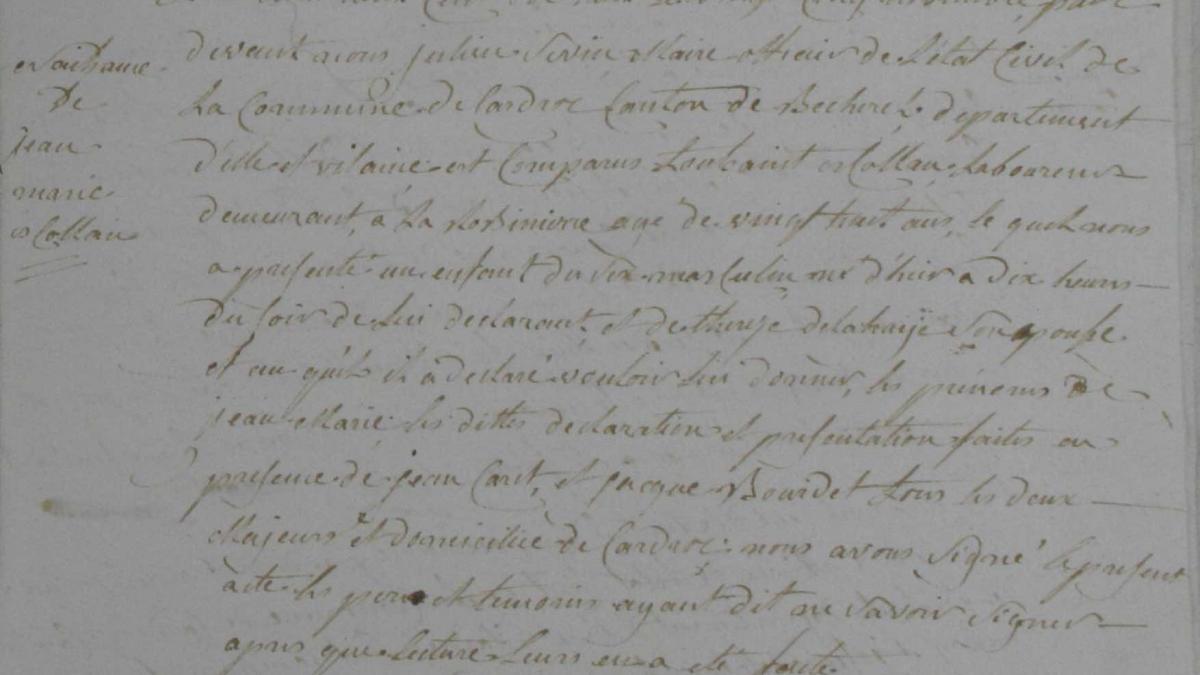 Naissance
De
jean
marie
Collau
devant nous julien Sevin Maire officier de L'état Civil de
La Commune de Cardroc Canton de Becherel departement
d'ille et vilaine est Comparus Toussaint Collau Laboureur
demeurant, a La Robiniere age de vingt huit ans, le quel nous
a presenté un enfant du Sex masculin né d'hier a dix heures
du soir de Lui declarant, et de therese delahaÿe Son epouse
et au quel il a declaré vouloir Lui donner, les prenoms de
jean Marie, les dittes declaration et presentation faites en
presence de jean Caret, et jacque Bourdet tous les deux
Majeurs et domicilié de Cardroc: nous avons Signé le present
acte les pere et temoins ayant dit ne Savoir Signer
apres que Lecture Leurs en a eté faite